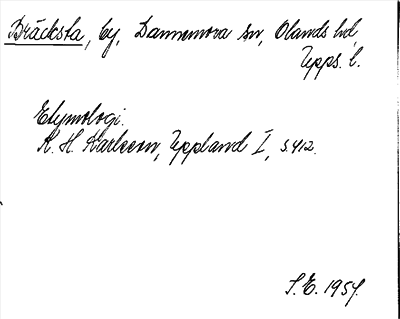 Bräcksta, by, Dannemora sn, Olands hd,
Upps. l.
Etymologi.
K. H. Karlsson, Uppland I, s. 412.
S. E. 1959.